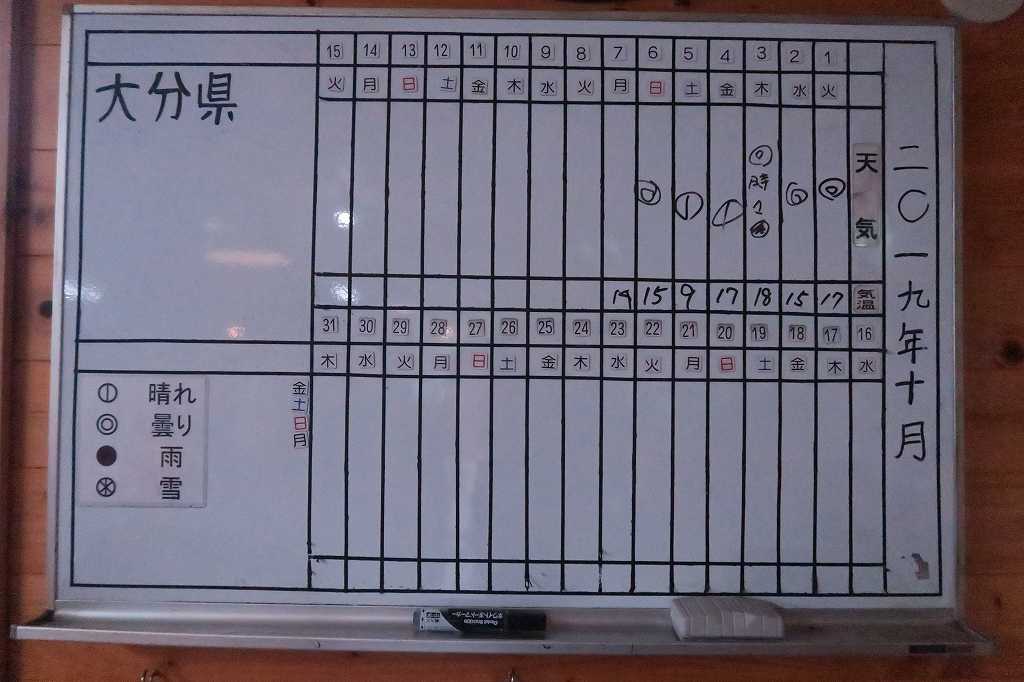 二〇一九年十月
大分県
15 14 13 12 11 10 9 8 7 6 5 4 3 2 1
火 月 日 土 金 木 水 火 月 日 土 金 木 水 火
天気
◎ ⦶ ⦶ ◎時々● ◎ ◎
気温
14 15 9 17 18 15 17
31 30 29 28 27 26 25 24 23 22 21 20 19 18 17 16
木 水 火 月 日 土 金 木 水 火 月 日 土 金 木 水
金
土
日
月
⦶ 晴れ
◎ 曇り
● 雨
⊛ 雪